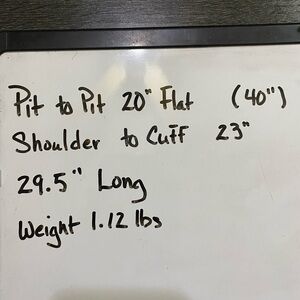 Pit to Pit 20" Flat (40")
Shoulder to Cuff 23"
29.5" Long
Weight 1.12 lbs